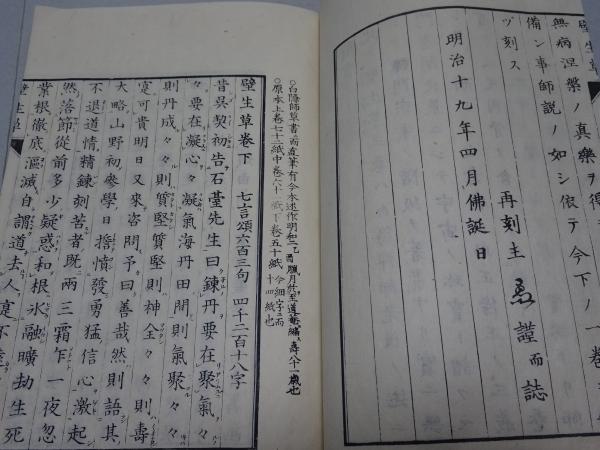 壁生草
無病涅槃ノ真樂ヲ得
備ン事師説ノ如シ依テ今下ノ一卷
ヅ刻ス
明治十九年四月佛誕日
再刻主 謹而誌
○白隱師草書而直筆有今本述作明和二乙酉臘月於至道庵編壽八十一歳也
○原本上卷七十二紙中卷六十一紙下卷五十紙今細字而十四紙也
壁生草卷下 七言頌六百三句 四千二百十八字
昔吳契初告石臺先生曰鍊丹要在聚氣々
々要在凝心々凝氣海丹田間則氣聚々々
則丹成々々則質堅質堅則神全々々則壽
寔可貴明日又來咨問予曰善哉然則語其
大略山野初參學日擔憤發勇猛信心激起
不退道情精鍊刻苦者既兩三霜乍一夜忽
然落節從前多少疑惑和根氷融曠劫生死
業根徹底漚滅自謂道去人寔不
壁生草